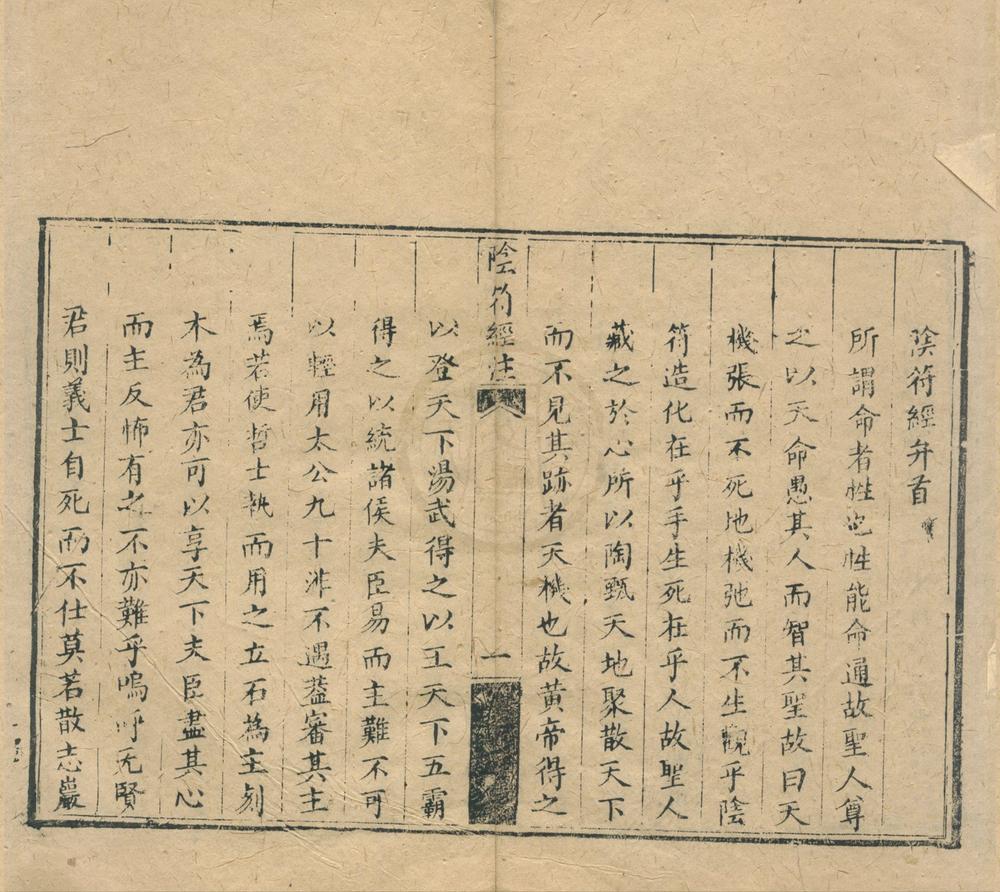 陰符經弁首
所謂命者性也性能命通故聖人尊
之以天命愚其人而智其聖故曰天
機張而不死地機弛而不生觀乎陰
符造化在乎手生死在乎人故聖人
藏之於心所以陶甄天地聚散天下
而不見其跡者天機也故黃帝得之
陰符經注
一
以登天下湯武得之以王天下五霸
得之以統諸侯夫臣易而主難不可
以輕用太公九十非不遇蓋審其主
焉若使哲士執而用之立石為主刻
木為君亦可以享天下夫臣盡其心
而主反怖有之不亦難乎嗚呼无賢
君則義士自死而不仕莫若散志巖